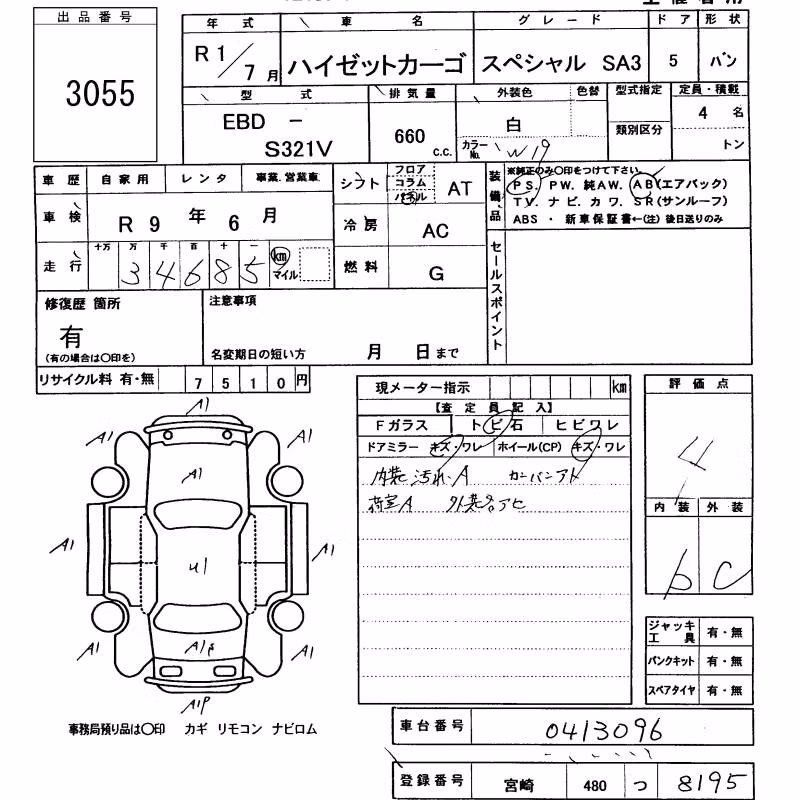 出品番号
3055
年式 車名 グレード ドア 形状
R1/7月 ハイゼットカーゴ スペシャル SA3 5 バン
型式 排気量 外装色 色替 型式指定 定員・積載
EBD - S321V 660 c.c. 白 カラーNo. W19 類別区分 4名 トン
車歴 自家用 レンタ 事業.営業車 シフト フロア コラム パネル AT
車検 R9年6月 冷房 AC
走行 十万 万 千 百 十 一 34685 km マイル 燃料 G
装備品 ※純正のみ〇印をつけて下さい
PS. PW. 純AW. AB(エアバック)
TV. ナビ. カワ. SR(サンルーフ)
ABS ・ 新車保証書←(注) 後日送りのみ
セールスポイント
修復歴 箇所 注意事項
有
(有の場合は〇印を) 名変期日の短い方 月 日まで
リサイクル料 有・無 7510円
現メーター指示 km 評価点
【査定員記入】
Fガラス トビ石 ヒビワレ
ドアミラー キズ・ワレ ホイール(CP) キズ・ワレ
4
内装汚れ・A カンバンアト
荷室A 外装名アセ
内装 外装
b C
A1
A1 A1
A1
A1 A1
U1
A1 A1P A1
A1P
ジャッキ工具 有・無
パンクキット 有・無
スペアタイヤ 有・無
事務局預り品は〇印 カギ リモコン ナビロム
車台番号 0413096
登録番号 宮崎 480 つ 8195